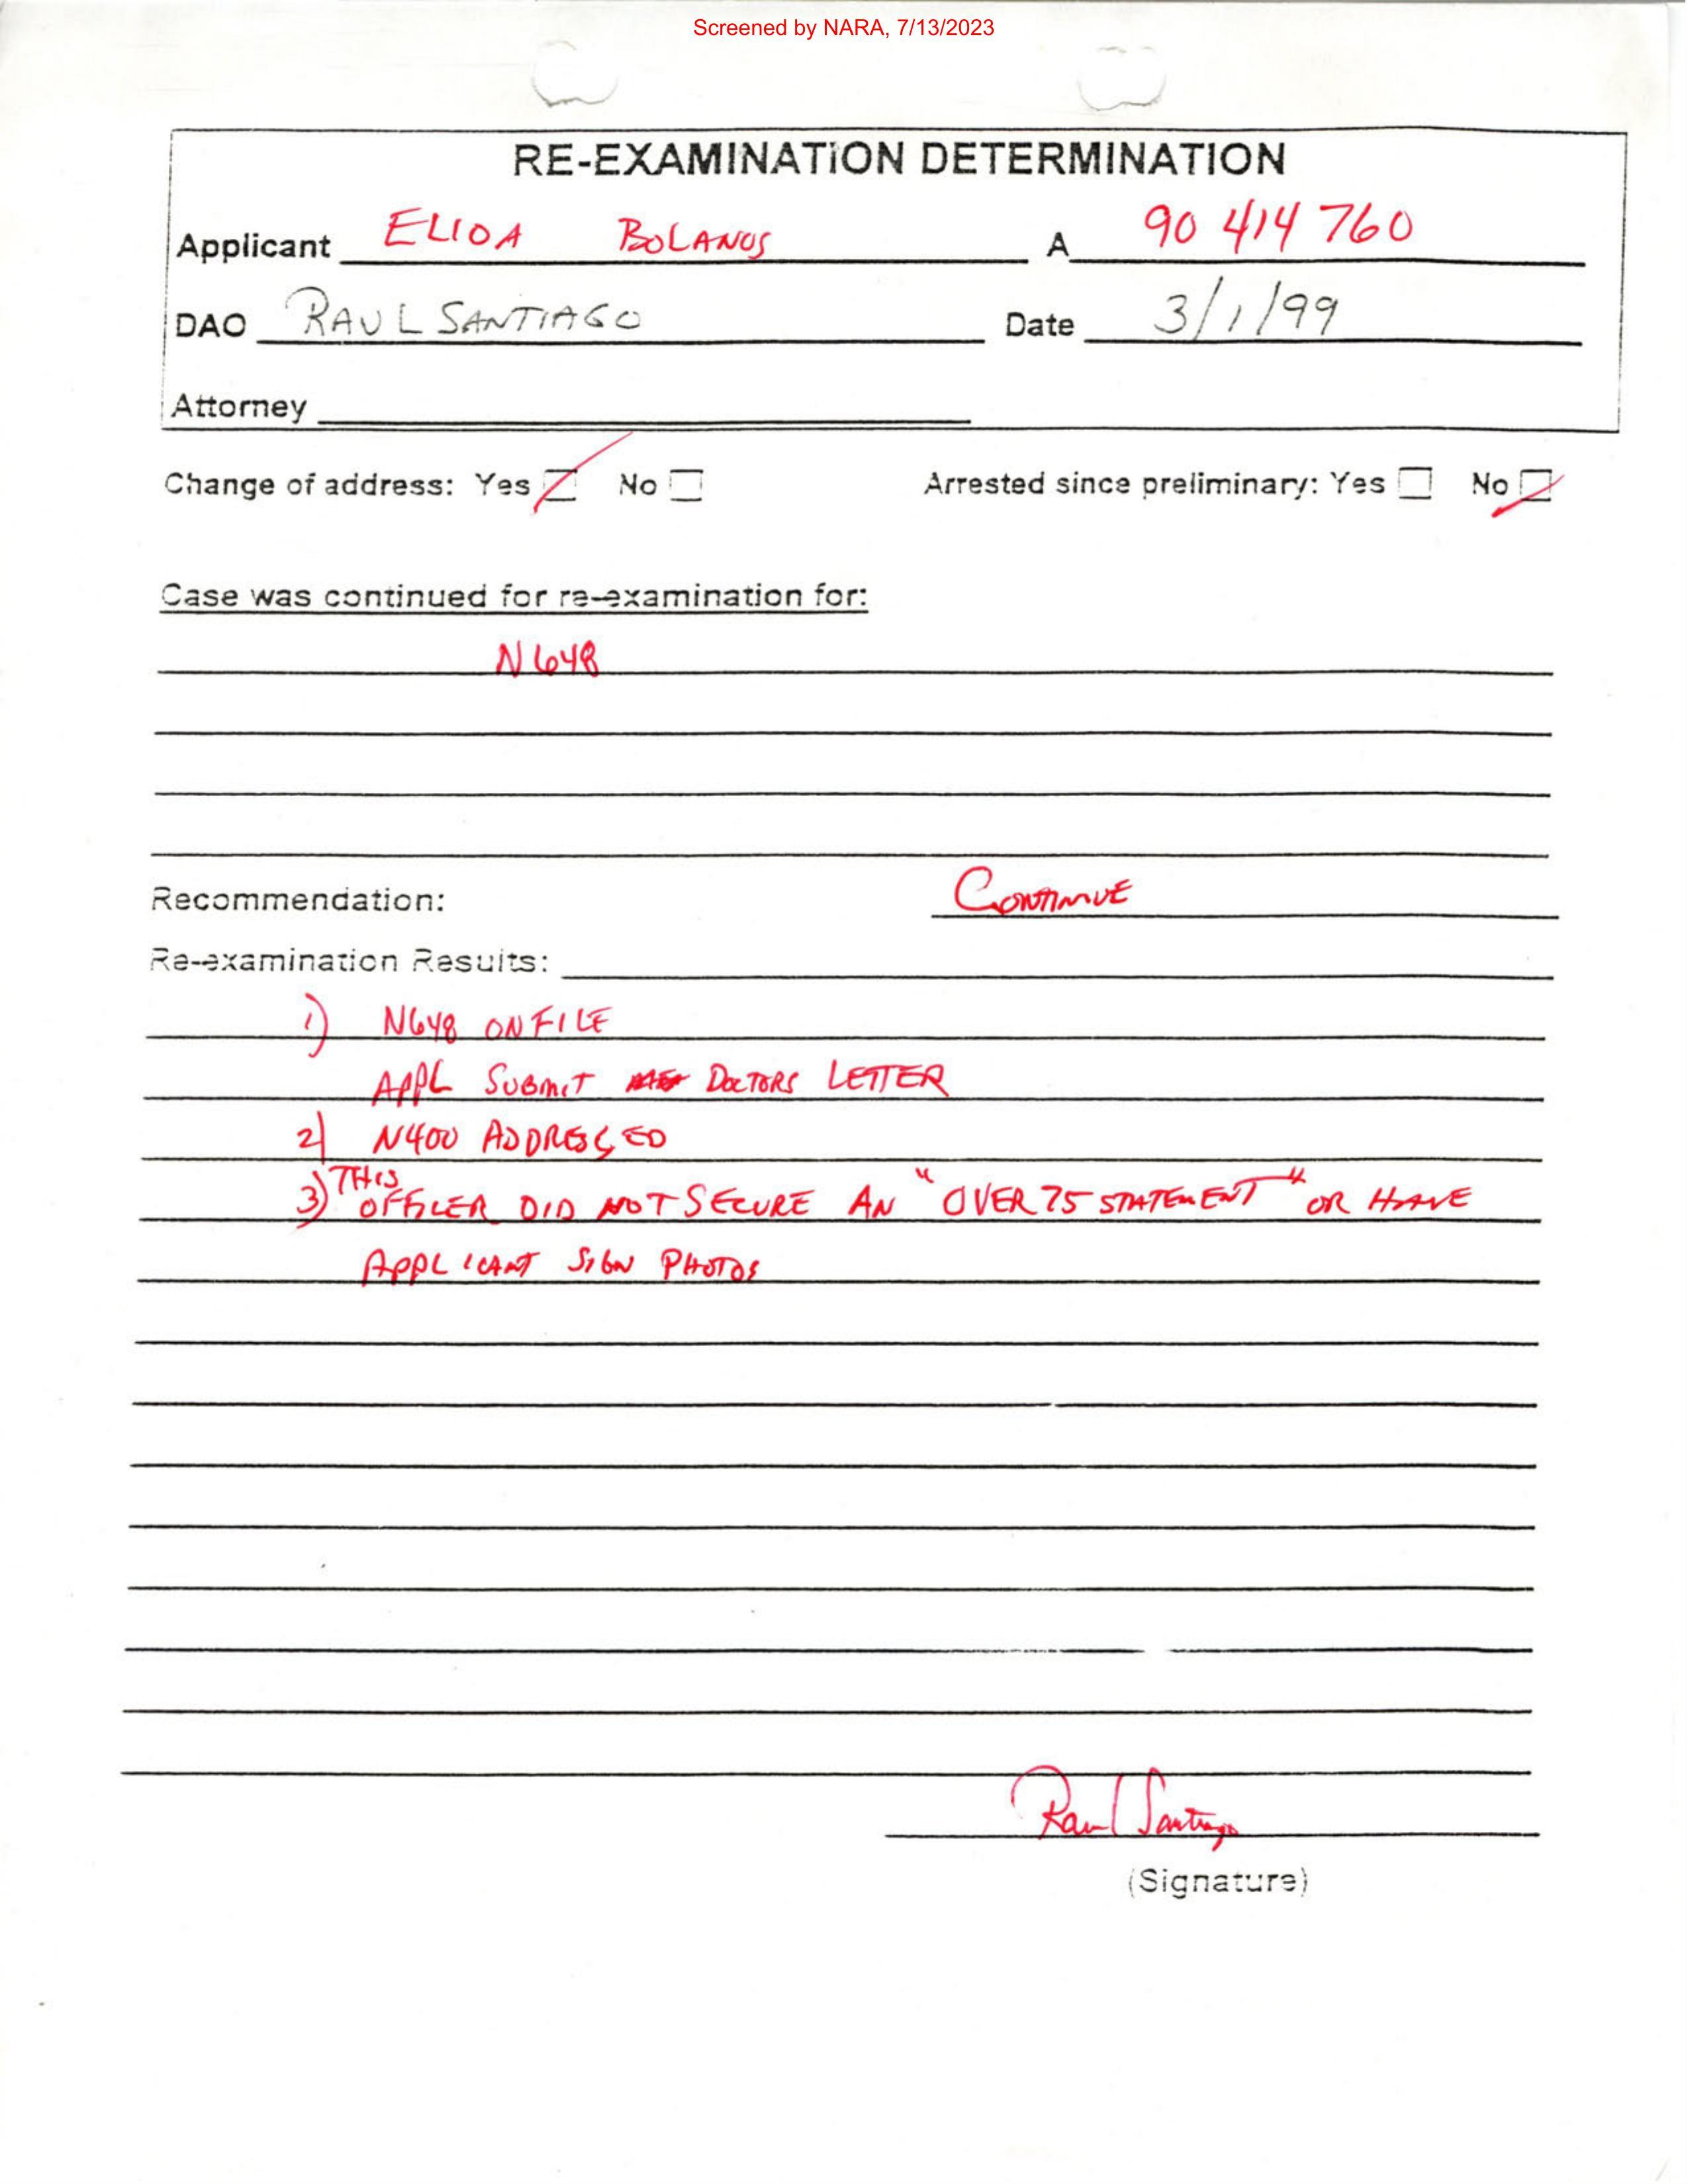 Screened by NARA, 7/13/2023
RE-EXAMINATION DETERMINATION
Applicant ELIDA BOLANOS A 90 414 760
DAO RAUL SANTIAGO Date 3/1/99
Attorney
Change of address: Yes No Arrested since preliminary: Yes No
Case was continued for re-examination for:
N648
Recommendation: CONTINUE
Re-examination Results:
1) N648 ON FILE
APPL SUBMIT DOCTORS LETTER
2) N400 ADDRESSED
3) THIS OFFICER DID NOT SECURE AN "OVER 75 STATEMENT" OR HAVE
APPLICANT SIGN PHOTOS
Raul Santiago
(Signature)